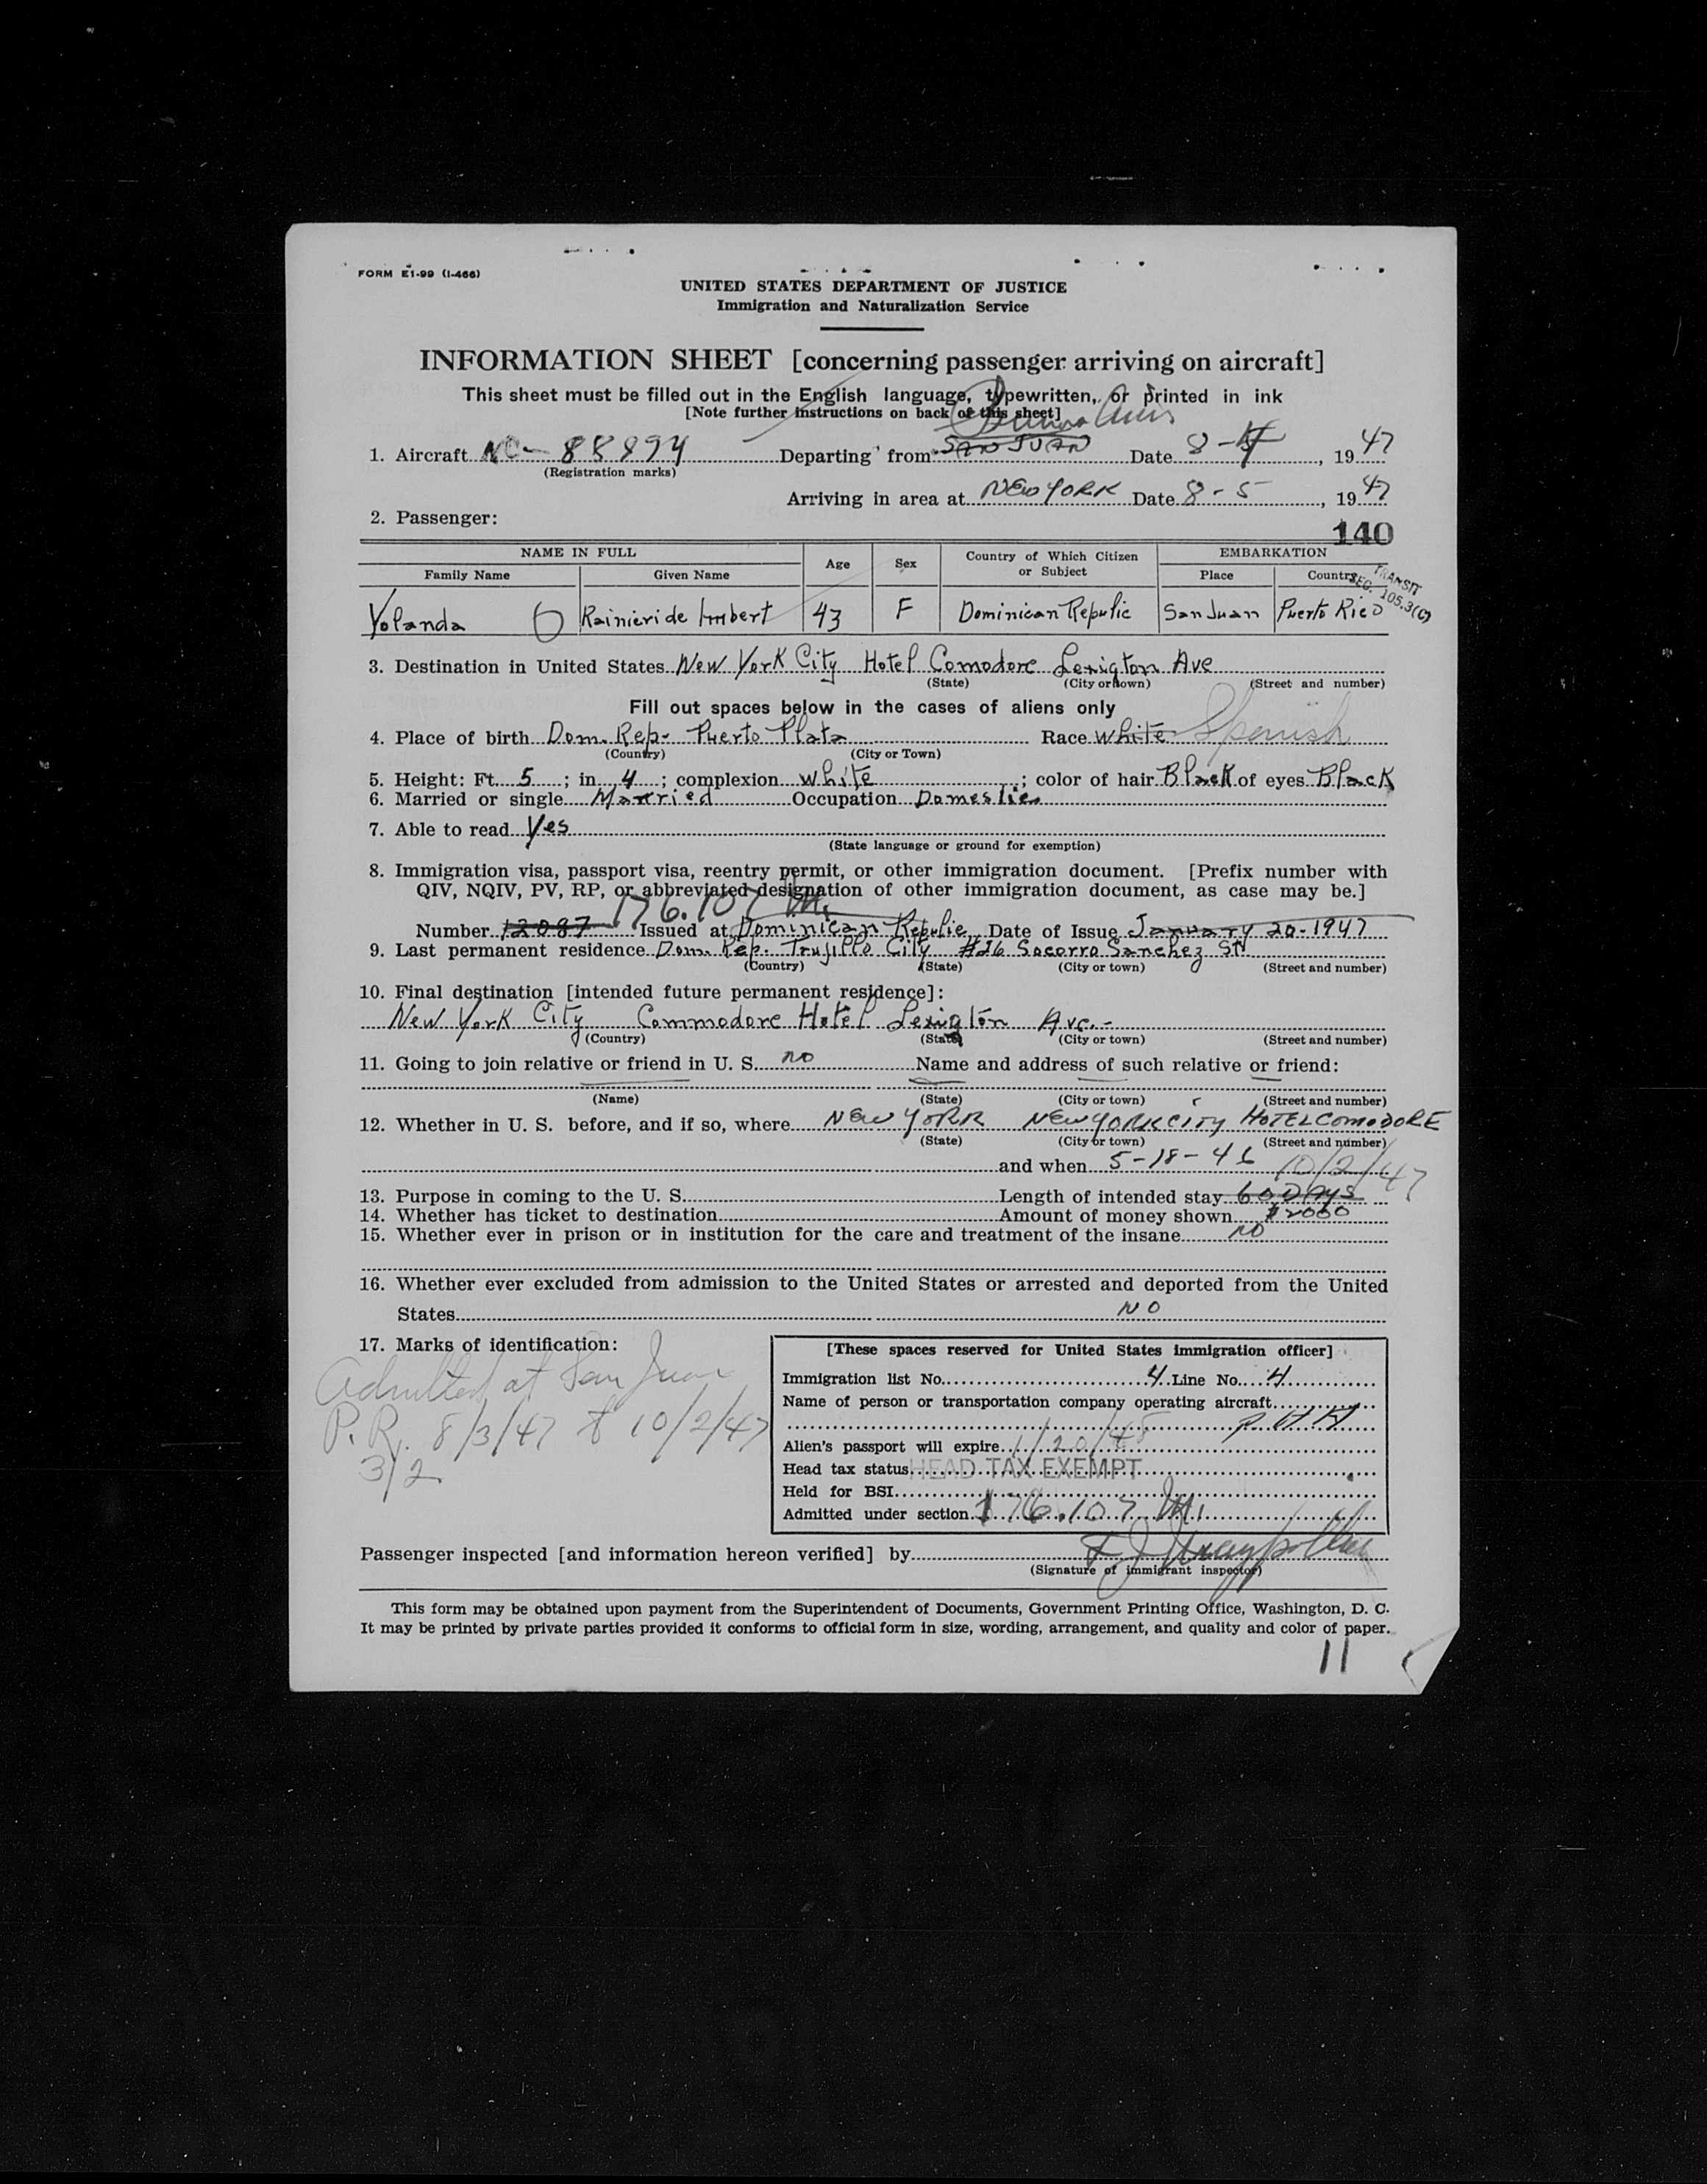 FORM E1-99 (I-466)
UNITED STATES DEPARTMENT OF JUSTICE
Immigration and Naturalization Service
INFORMATION SHEET [concerning passenger arriving on aircraft]
This sheet must be filled out in the English language, typewritten, or printed in ink
[Note further instructions on back of this sheet]
Buenos Aires
1. Aircraft NC-88894 Departing from SAN JUAN Date 8-4, 1947
(Registration marks)
Arriving in area at NEW YORK Date 8-5, 1947
2. Passenger:
140
NAME IN FULL Age Sex Country of Which Citizen or Subject EMBARKATION
Family Name Given Name Place Country
TRANSIT
SEC. 105.3(C)
Yolanda Rainieri de Imbert 43 F Dominican Repulic San Juan Puerto Rico
3. Destination in United States New York City Hotel Comodore Lexigton Ave
(State) (City or town) (Street and number)
Fill out spaces below in the cases of aliens only
4. Place of birth Dom. Rep- Puerto Plata Race white Spanish
(Country) (City or Town)
5. Height: Ft. 5; in. 4; complexion white; color of hair Black of eyes Black
6. Married or single Married Occupation Domestic
7. Able to read Yes
(State language or ground for exemption)
8. Immigration visa, passport visa, reentry permit, or other immigration document. [Prefix number with
QIV, NQIV, PV, RP, or abbreviated designation of other immigration document, as case may be.]
176.107
Number 12087 Issued at Dominican Repulic Date of Issue January 20-1947
9. Last permanent residence Dom. Rep. Trujillo City #26 Socorro Sanchez St
(Country) (State) (City or town) (Street and number)
10. Final destination [intended future permanent residence]:
New York City Commodore Hotel Lexigton Ave.-
(Country) (State) (City or town) (Street and number)
11. Going to join relative or friend in U. S. no Name and address of such relative or friend:
(Name) (State) (City or town) (Street and number)
12. Whether in U. S. before, and if so, where NEW YORK NEW YORK CITY HOTEL COMODORE
(State) (City or town) (Street and number)
and when 5-18-46
10/2/47
13. Purpose in coming to the U. S. Length of intended stay 60 Days
14. Whether has ticket to destination Amount of money shown $2000
15. Whether ever in prison or in institution for the care and treatment of the insane NO
16. Whether ever excluded from admission to the United States or arrested and deported from the United
States NO
17. Marks of identification:
Admitted at San Juan
P.R. 8/3/47 to 10/2/47
3/2
[These spaces reserved for United States immigration officer]
Immigration list No. 4 Line No. 4
Name of person or transportation company operating aircraft
Alien's passport will expire 1/20/48
Head tax status HEAD TAX EXEMPT
Held for BSI
Admitted under section 176.107
Passenger inspected [and information hereon verified] by
(Signature of immigrant inspector)
This form may be obtained upon payment from the Superintendent of Documents, Government Printing Office, Washington, D. C.
It may be printed by private parties provided it conforms to official form in size, wording, arrangement, and quality and color of paper.
11